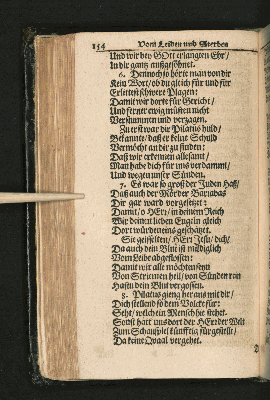 154 Vom Leiden und Sterben
Und wir bey GOtt erlangten Ehr/
In dir gantz außgesöhnet.
6. Dennoch so hörte man von dir
Kein Wort/ ob du gleich für und für
Erlittest schwere Plagen:
Damit wir dorte für Gericht/
Und ferner ewig müsten nicht
Verstummen und verzagen.
Zu erst war dir Pilatus huld/
Bekante/ daß er keine Schuld
Vermöcht an dir zu finden:
Daß wir erkennen allesamt/
Man habe dich für uns verdammt/
Und wegen unser Sünden.
7. Es war so groß der Juden Haß/
Daß auch der Mörder Barrabas
Dir gar ward vorgesetzt:
Damit/ o HErr/ in deinem Reich
Wir deinen lieben Engeln gleich
Dort würden eins geschätzet.
Sie geisselten/ HErr JEsu/ dich/
Da auch dein Blut ist mildiglich
Vom Leibe abgeflossen:
Damit wir alle möchten seyn
Von Striemen heil/ von Sünden rein
Hastu dein Blut vergossen.
8. Pilatus gieng heraus mit dir/
Dich stellend so dem Volcke für:
Seht/ welch ein Mensch hie stehet.
Sonst hätt uns dort der HErr der Welt
Zum Schauspiel künfftig fürgestellt/
Da keine Quaal vergehet.